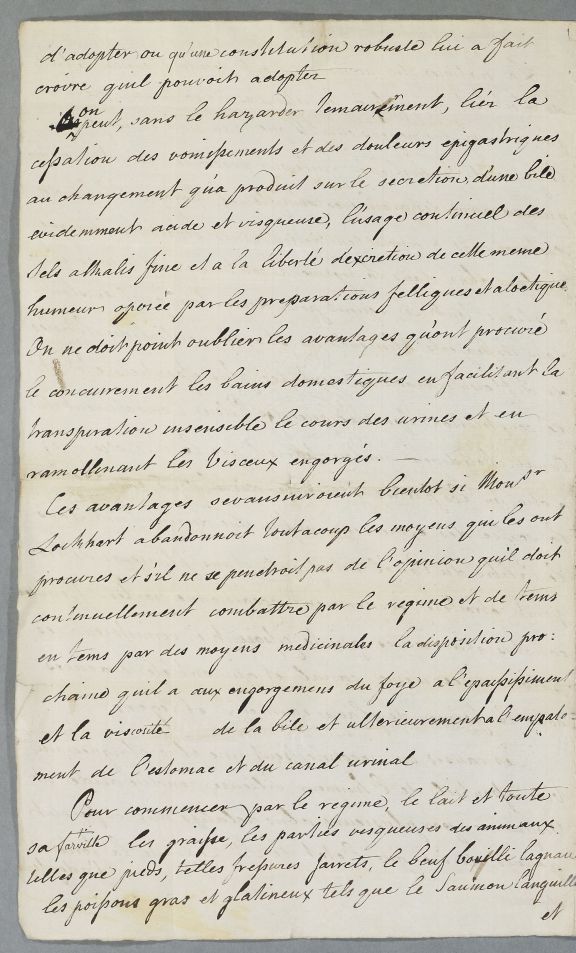 d'adopter ou qu'une constitution robuste lui a fait
croire quil pouvoit adopter
on
peut, sans le hazarder temairement, liér la
cessation des vomissements et des douleurs epigastriques
au changement qu'a produit sur le secretion d'une bile
evidemment acide et visqueuse, l'usage continuel des
sels alkalis fine et a la liberté d'excretion de cette meme
humeur operée par les preparations felliques et aloetique.
On ne doit point oublier les avantages qu'ont procuré
le concurement les bains domestiques en facilitant la
transpiration insensible le cours des urines et en
ramollissant les Visceux engorgés. —
Ces avantages sevanuiroient bientot si Monsr
Lockhart abandonnoit tout acoup les moyens qui les ont
procures et s'il ne se penetroit pas de l'opinion qu'il doit
continuellement combattre par le regime et de tems
en tems par des moyens medicinales la disposition pro:
chaine quil a aux engorgemens du foye a l'epaississiment
et la viscosité de la bile et ulterieurement a l'empato=
ment de l'estomac et du canal urinal
Pour commencer par le regime, le lait et toute
sa famille les graisse, les parties visqueuses des animaux
telles que pieds, telles fressures Jarrets, le beuf bouilli lagneau
les poissons gras et glatineux tels que le Saumon languille
et